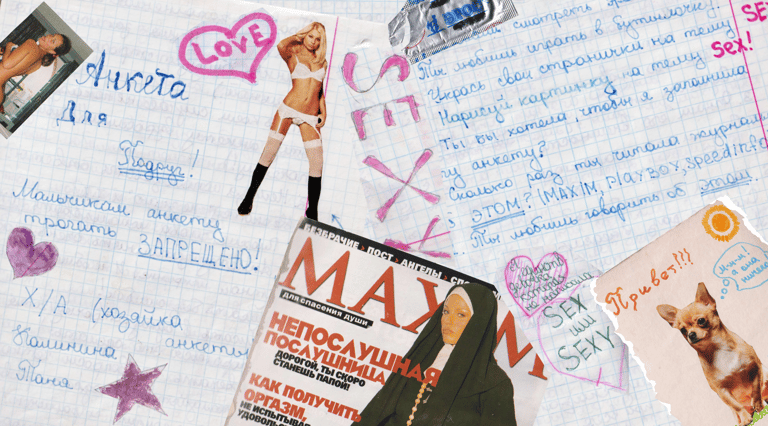 LOVE
Анкета
Для
Подруг!
Мальчикам анкету
трогать ЗАПРЕЩЕНО!
Х/А (хозяйка анкеты
Калинина
Таня
SEXY
смотреть
Ты любишь играть в бутылочку?
Укрась свои странички на тему
Нарисуй картинку на тему
Ты бы хотела, чтобы я заполнила
анкету?
Сколько раз ты читала журнал
ЭТОМ? (MAXIM, PLAYBOY, Speedinfo
Ты любишь говорить об этом.
sex!
БЕЗБРАЧИЕ • ПОСТ • АНГЕЛЫ
MAXIM
для спасения души
НЕПОСЛУШНАЯ
ПОСЛУШНИЦА
ДОРОГОЙ, ТЫ СКОРО
СТАНЕШЬ ПАПОЙ!
КАК ПОЛУЧИТЬ
ОРГАЗМ,
НЕ ИСПЫТЫВАЯ
УДОВОЛЬ
SEX
или
SEXY
Привет!!!
М-м-м!
а она
ничего!